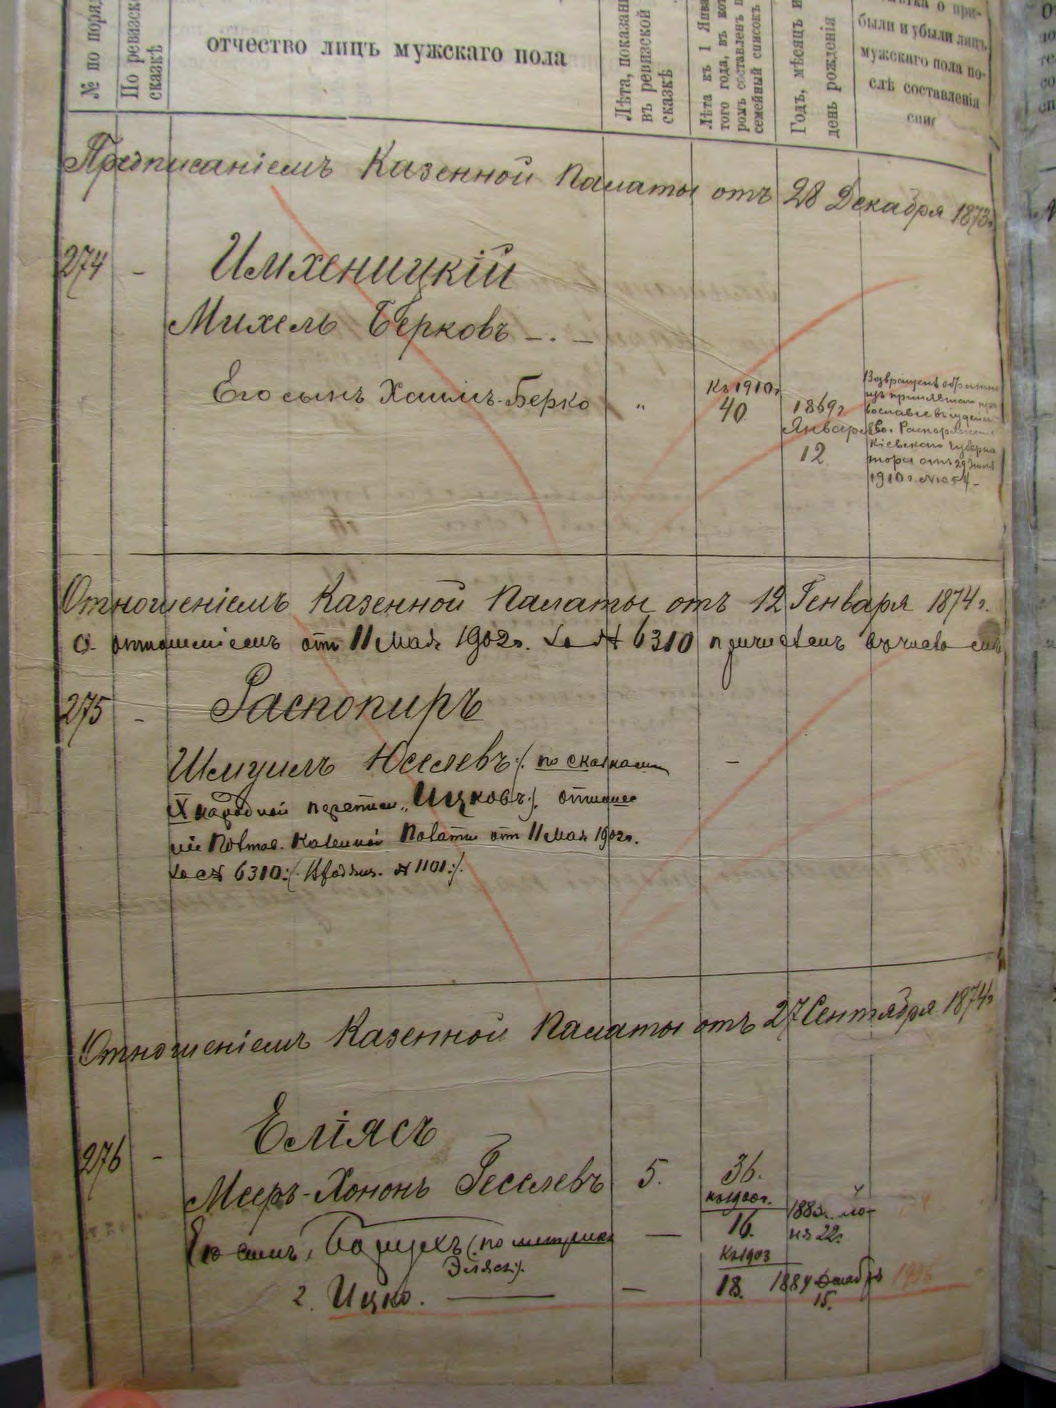 № по поряд
По ревизско
сказкѣ
отчество лицъ мужскаго пола
Лѣта, показан
въ ревизской
сказкѣ
Лѣта къ 1 Янва
того года, въ кот
ромъ составленъ п
семейный списокъ
Годъ, мѣсяцъ и
день рожденія
тка о при-
были и убыли лицъ
мужскаго пола по-
слѣ составленія
спис
Предписаніемъ Казенной Палаты отъ 28 Декабря 1873г.
274 - Имхеницкій
Михель Берковъ -.-
Его сынъ Хаимъ-Берко " Къ 1910г. 40 1869г Января 12
Возвращенъ
Кіевскаго Губерна
тора отъ 29
1910г.
Отношеніемъ Казенной Палаты отъ 12 Генваря 1874г.
отношеніемъ от 11 мая 1902г. за № 6310 причисленъ
275 - Распопиръ
Шмуилъ Юселевъ /. по сказкамъ -
X народной переписи „Ицковъ". отноше
ніе Полтав. Казенной Палаты от 11 мая 1902г.
за № 6310:/. № 1101:/.
Отношеніемъ Казенной Палаты отъ 27 Сентября 1874г
276 - Еліясъ
Мееръ-Хононъ Геселевъ 5. 36.
Его сынъ, Борухъ (по метрикѣ — къ 1900г. 16. 1883г. ію-
ня 22г.
Эліяс). къ 1903
2. Ицко. — — 18. 1884 декабря 1906
15.